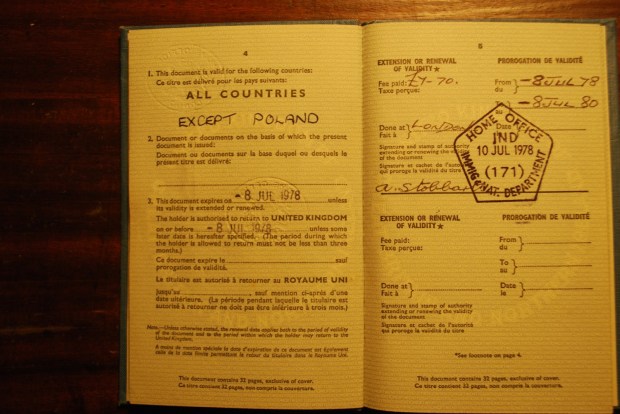 4
1. This document is valid for the following countries:
Ce titre est délivré pour les pays suivants:
ALL COUNTRIES
EXCEPT POLAND
2. Document or documents on the basis of which the present
document is issued:
Document ou documents sur la base duquel ou desquels le
présent titre est délivré:
3. This document expires on - 8 JUL 1978 unless
its validity is extended or renewed.
The holder is authorised to return to UNITED KINGDOM
on or before - 8 JUL 1978 unless some
later date is hereafter specified. (The period during which
the holder is allowed to return must not be less than three
months.)
Ce document expire le sauf
prorogation de validité.
Le titulaire est autorisé à retourner au ROYAUME UNI
jusqu'au sauf mention ci-après d'une
date ultérieure. (La période pendant laquelle le titulaire est
autorisé à retourner ne doit pas être inférieure à trois mois.)
Note.—Unless otherwise stated, the renewal date applies both to the period of validity
of the document and to the period within which the holder may return to the
United Kingdom.
A moins de mention spéciale la date d'expiration de ce document est également
celle de la date limite permettant le retour du titulaire dans le Royaume Uni.
This document contains 32 pages, exclusive of cover.
Ce titre contient 32 pages, non compris la couverture.
EXTENSION OR RENEWAL
OF VALIDITY★
PROROGATION DE VALIDITÉ
Fee paid: £1-70.
Taxe perçue:
From - 8 JUL 78
du
- 8 JUL 80
au
Done at London
Fait à
Date
Signature and stamp of authority
extending or renewing the validity
of the document
Signature et cachet de l'autorité
qui proroge la validité du titre
HOME OFFICE
IND
10 JUL 1978
(171)
IMMIG. & NAT. DEPARTMENT
EXTENSION OR RENEWAL
OF VALIDITY
PROROGATION DE VALIDITÉ
Fee paid:
Taxe perçue:
From
du
To
au
Done at
Fait à
Date
le
Signature and stamp of authority
extending or renewing the validity
of the document
Signature et cachet de l'autorité
qui proroge la validité du titre
*See footnote on page 4.
This document contains 32 pages, exclusive of cover.
Ce titre contient 32 pages, non compris la couverture.